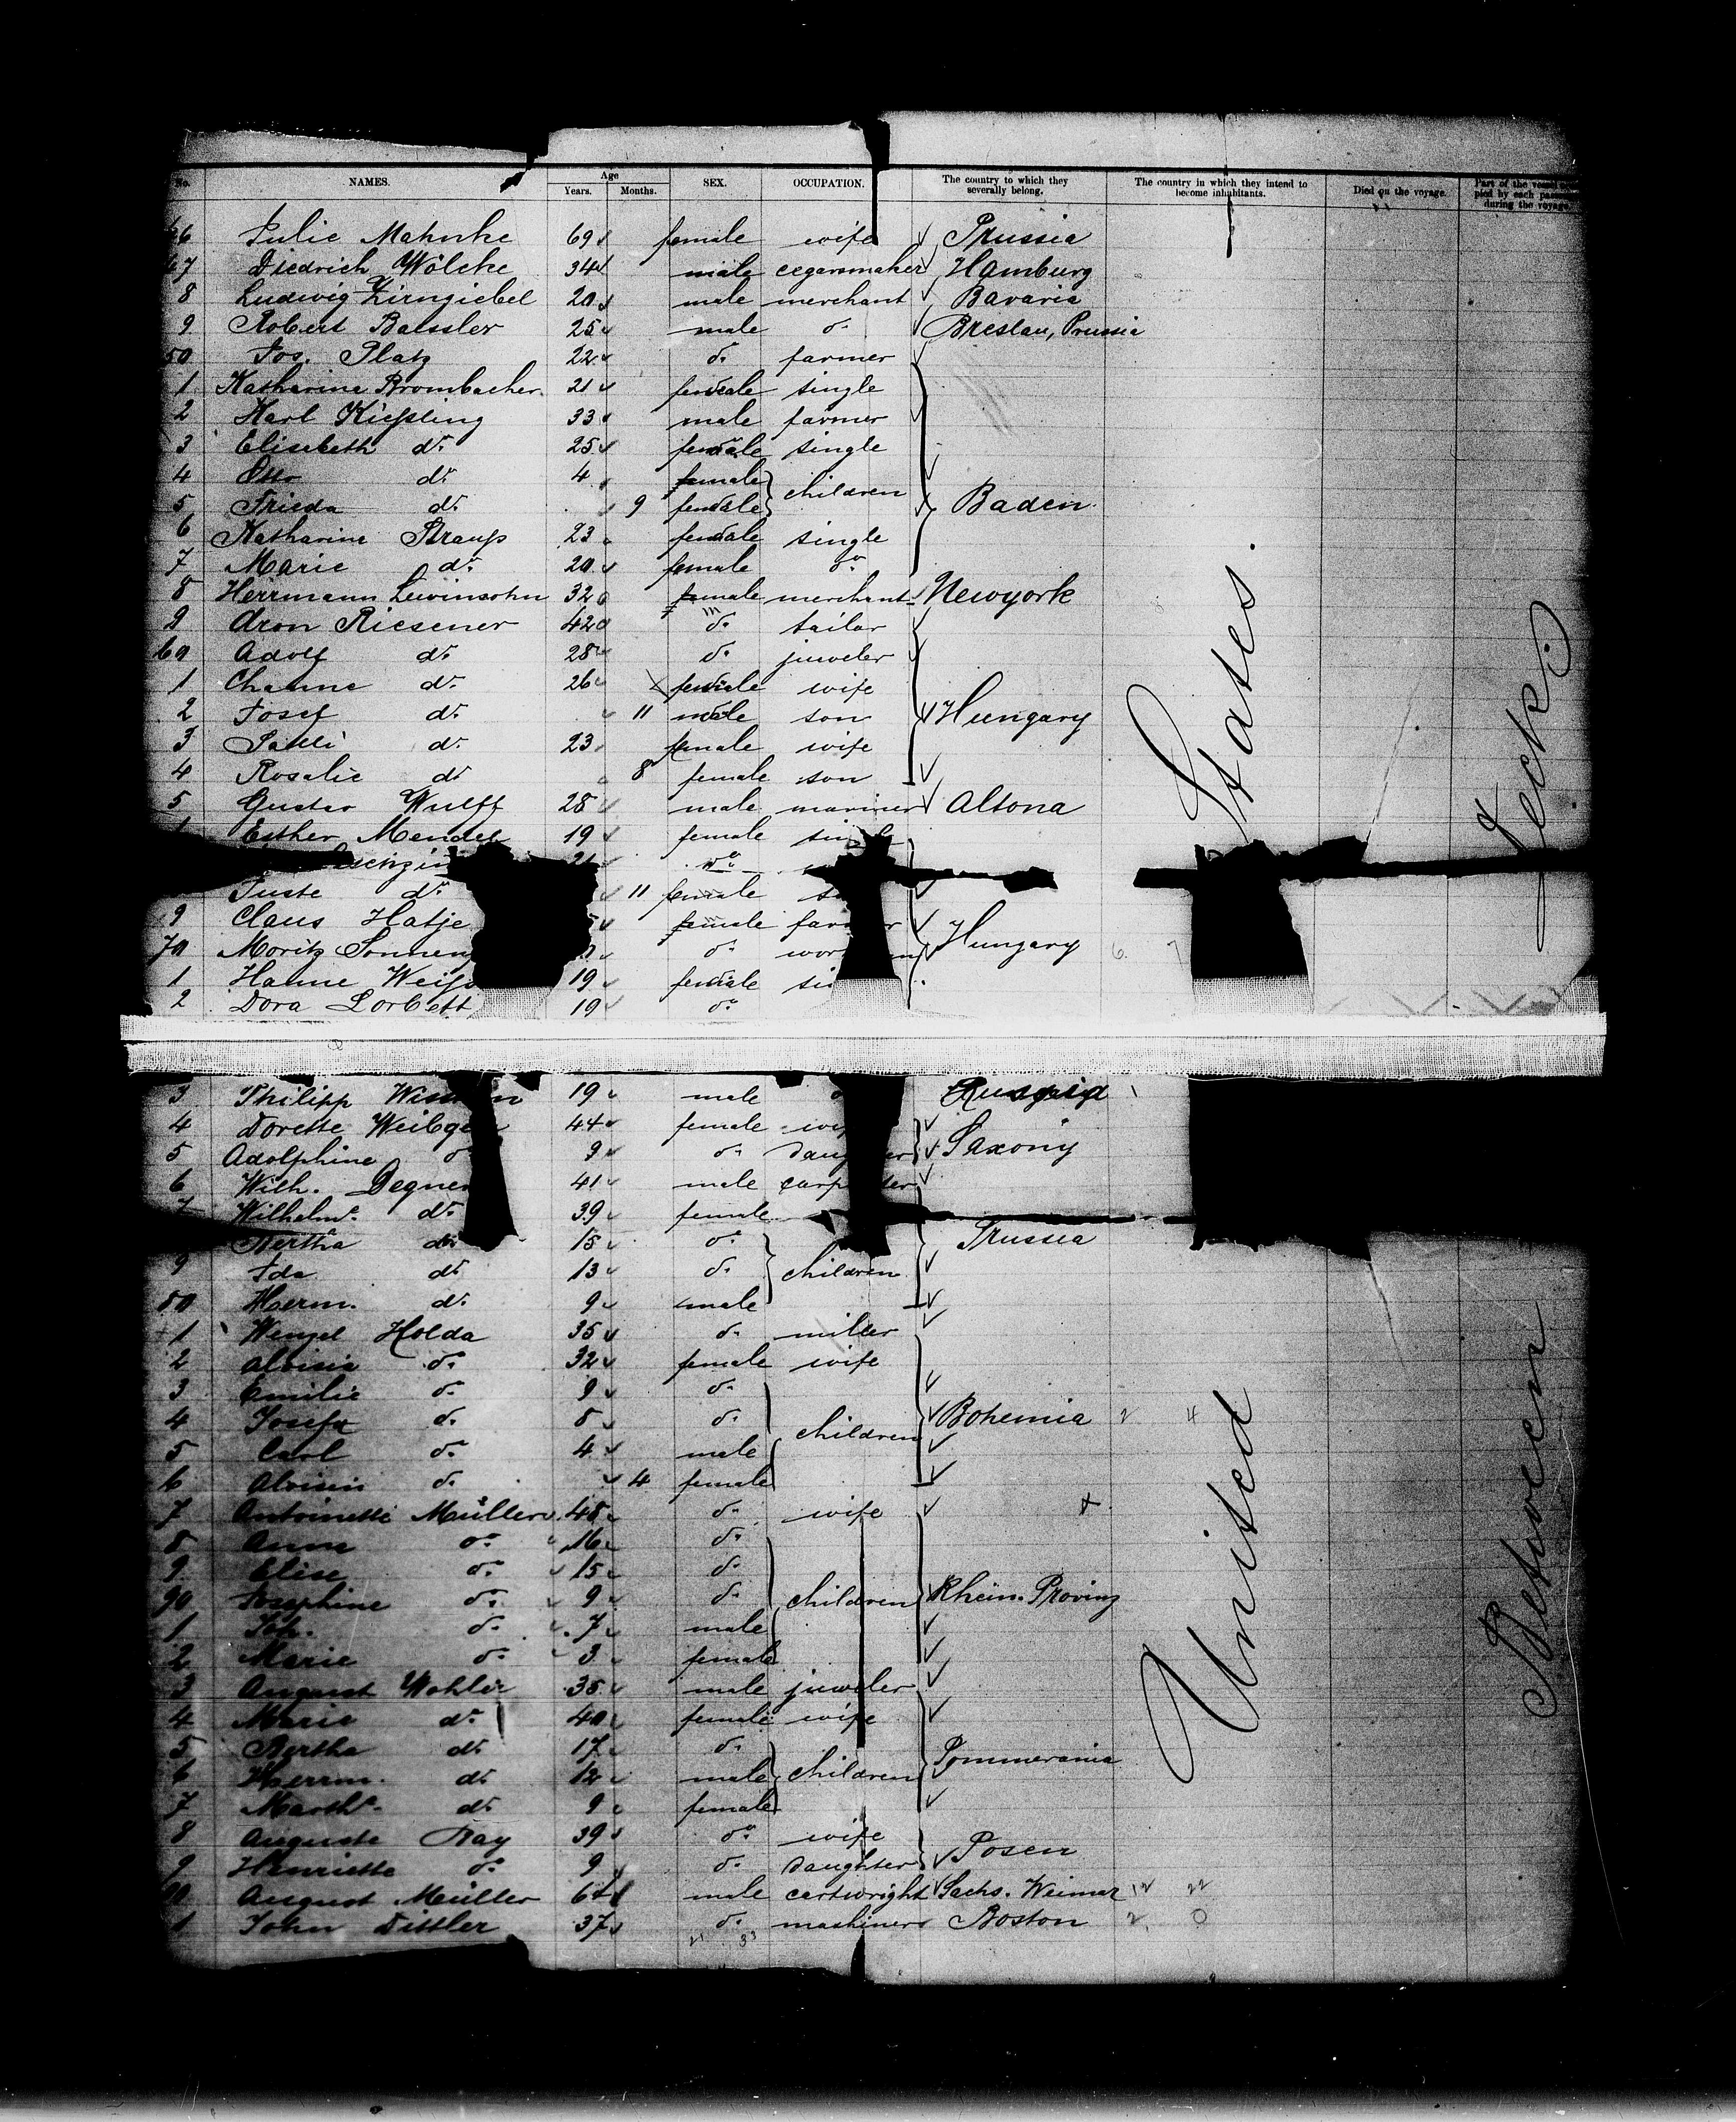 No. NAMES. Age Years. Months. SEX. OCCUPATION. The country to which they severally belong. The country in which they intend to become inhabitants. Died on the voyage. Part of the vessel
pied by each
during the voyage.
6 Julie Mahnke 69 female wife Prussia
7 Diedrich Wölcke 34 male cegarsmaker Hamburg
8 Ludwig Zirngiebel 20 male merchant Bavaria
9 Robert Bassler 25 male do Breslau, Prussia
50 Jos. Platz 22 do farmer
1 Katharina Brombacher 21 female single
2 Karl Kießling 33 male farmer
3 Elisabeth do 25 female single
4 Otto do 4 female children
5 Frieda do 9 female Baden
6 Katharine Strauß 23 female single
7 Marie do 20 female do
8 Herrmann Lewinsohn 32 male merchant Newyork
9 Aron Riesener 42 do tailor
60 Adolf do 28 do juweler
1 Channe do 26 female wife
2 Josef do 11 male son Hungary
3 do 23 female wife
4 Rosalie do 8 female son
5 Gustav Wulff 28 male mariner Altona
Esther Mendel 19 female
21 do
Juste do 11 female
9 Claus Hatje male
70 Moritz do Hungary
1 Hanne 19 female
2 Dora 19 do
3 Philipp 19 male Russia
4 Dorette 44 female Saxony
5 Adolphine 9 do
6 Wilh. Degner 41 male
Wilhelm. do 39 female
Bertha do 15 do Prussia
9 Ida do 13 do children
80 Herm. do 9 male
1 Wenzel Holda 35 do miller
2 Aloisia do 32 female wife
3 Emilie do 9 do
4 Josefa do 8 do children Bohemia 2 4
5 Carl do 4 male
6 Aloisia do 4 female
7 Antoinette Müller 48 do wife
8 Anna do 16 do
9 Elise do 15 do
90 Josephine do 9 do children Rhein. Provinz
1 Joh. do 7 male
2 Marie do 3 female
3 August Wohler 35 male juweler
4 Marie do 40 female wife
5 Bertha do 17 do Pommerania
6 Herrm. do 12 male children
7 Marth. do 9 female
8 Auguste Ray 39 do wife Posen
9 Henriette do 9 do daughter
August Müller 64 male cartwright Sachs. Weimar 12 22
1 John Dittler 37 do mashiner Boston 2 0
United States.
Between Deck